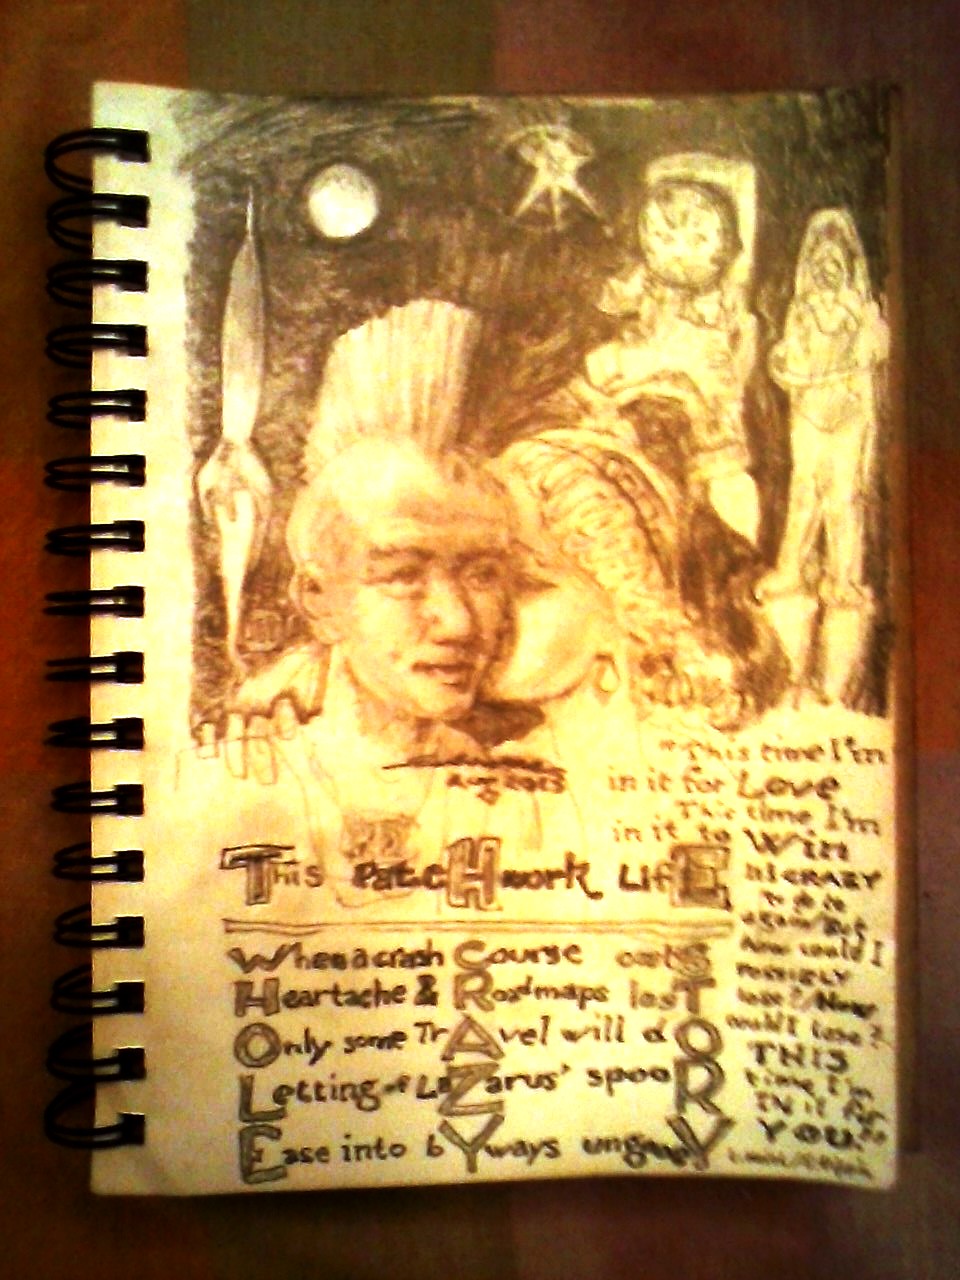 Aug 2013
This PatcHwork LifE
When a crash Course costS
Heartache & Roadmaps losT
Only some TrAvel will dO
Letting of LaZarus' spooR
Ease into bYways
"This time I'm
in it for Love
This time I'm
in it to Win
It's CRAZY
to go
again But
how could I
possibly
lose?/How
could I lose?
THIS
time I'm
IN it for
YOU."